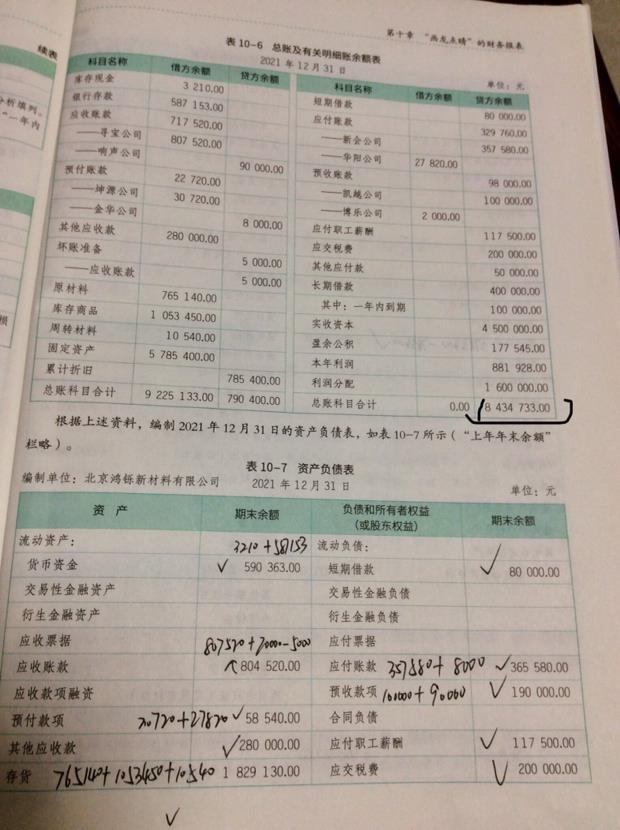 第十章 “画龙点睛”的财务报表
续表
分析填列。
“一年内
损
表 10-6 总账及有关明细账余额表
2021 年 12 月 31 日
单位：元
科目名称 借方余额 贷方余额 科目名称 借方余额 贷方余额
库存现金 3 210.00 短期借款 80 000.00
银行存款 587 153.00 应付账款 329 760.00
应收账款 717 520.00 ——新会公司 357 580.00
——寻宝公司 807 520.00 ——华阳公司 27 820.00
——响声公司 90 000.00 预收账款 98 000.00
预付账款 22 720.00 ——凯越公司 100 000.00
——坤源公司 30 720.00 ——博乐公司 2 000.00
——金华公司 8 000.00 应付职工薪酬 117 500.00
其他应收款 280 000.00 应交税费 200 000.00
坏账准备 5 000.00 其他应付款 50 000.00
——应收账款 5 000.00 长期借款 400 000.00
原材料 765 140.00 其中：一年内到期 100 000.00
库存商品 1 053 450.00 实收资本 4 500 000.00
周转材料 10 540.00 盈余公积 177 545.00
固定资产 5 785 400.00 本年利润 881 928.00
累计折旧 785 400.00 利润分配 1 600 000.00
总账科目合计 9 225 133.00 790 400.00 总账科目合计 0.00 8 434 733.00
根据上述资料，编制 2021 年 12 月 31 日的资产负债表，如表 10-7 所示（“上年年末余额”
栏略）。
表 10-7 资产负债表
编制单位：北京鸿铄新材料有限公司 2021 年 12 月 31 日 单位：元
资 产 期末余额 负债和所有者权益（或股东权益） 期末余额
流动资产： 3210+587153 流动负债：
货币资金 ✓ 590 363.00 短期借款 ✓ 80 000.00
交易性金融资产 交易性金融负债
衍生金融资产 衍生金融负债
应收票据 807520+2000-5000 应付票据
应收账款 804 520.00 应付账款 357580+8000 ✓ 365 580.00
应收款项融资 预收款项 100000+90000 ✓ 190 000.00
预付款项 30720+27820 ✓ 58 540.00 合同负债
其他应收款 ✓ 280 000.00 应付职工薪酬 ✓ 117 500.00
存货 765140+1053450+10540 1 829 130.00 应交税费 ✓ 200 000.00
✓